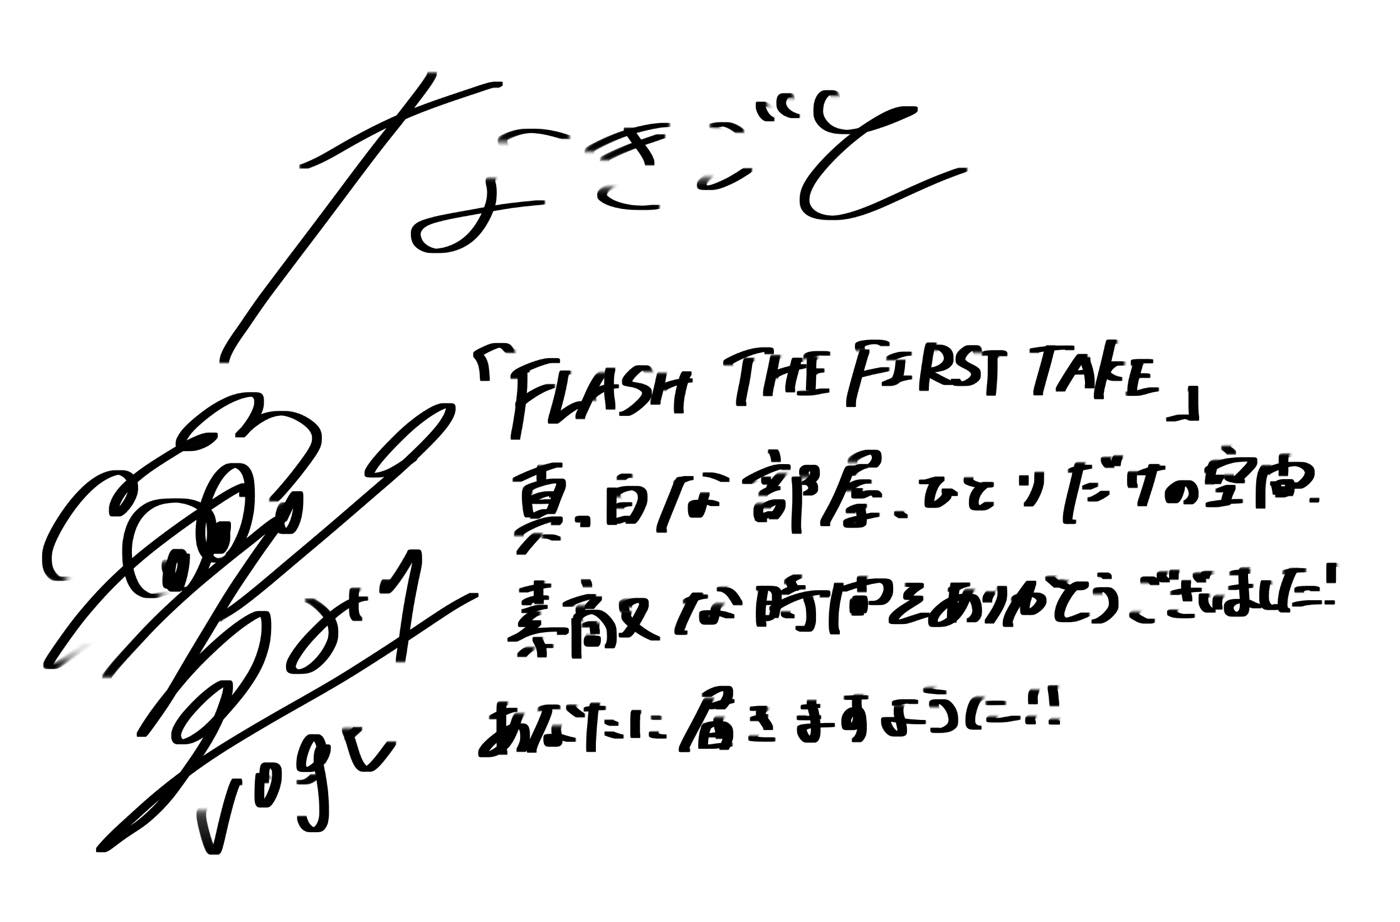 なきごと
「FLASH THE FIRST TAKE」
真っ白な部屋、ひとりだけの空間、
素敵な時間をありがとうございました!
あなたに届きますように!!
vogv